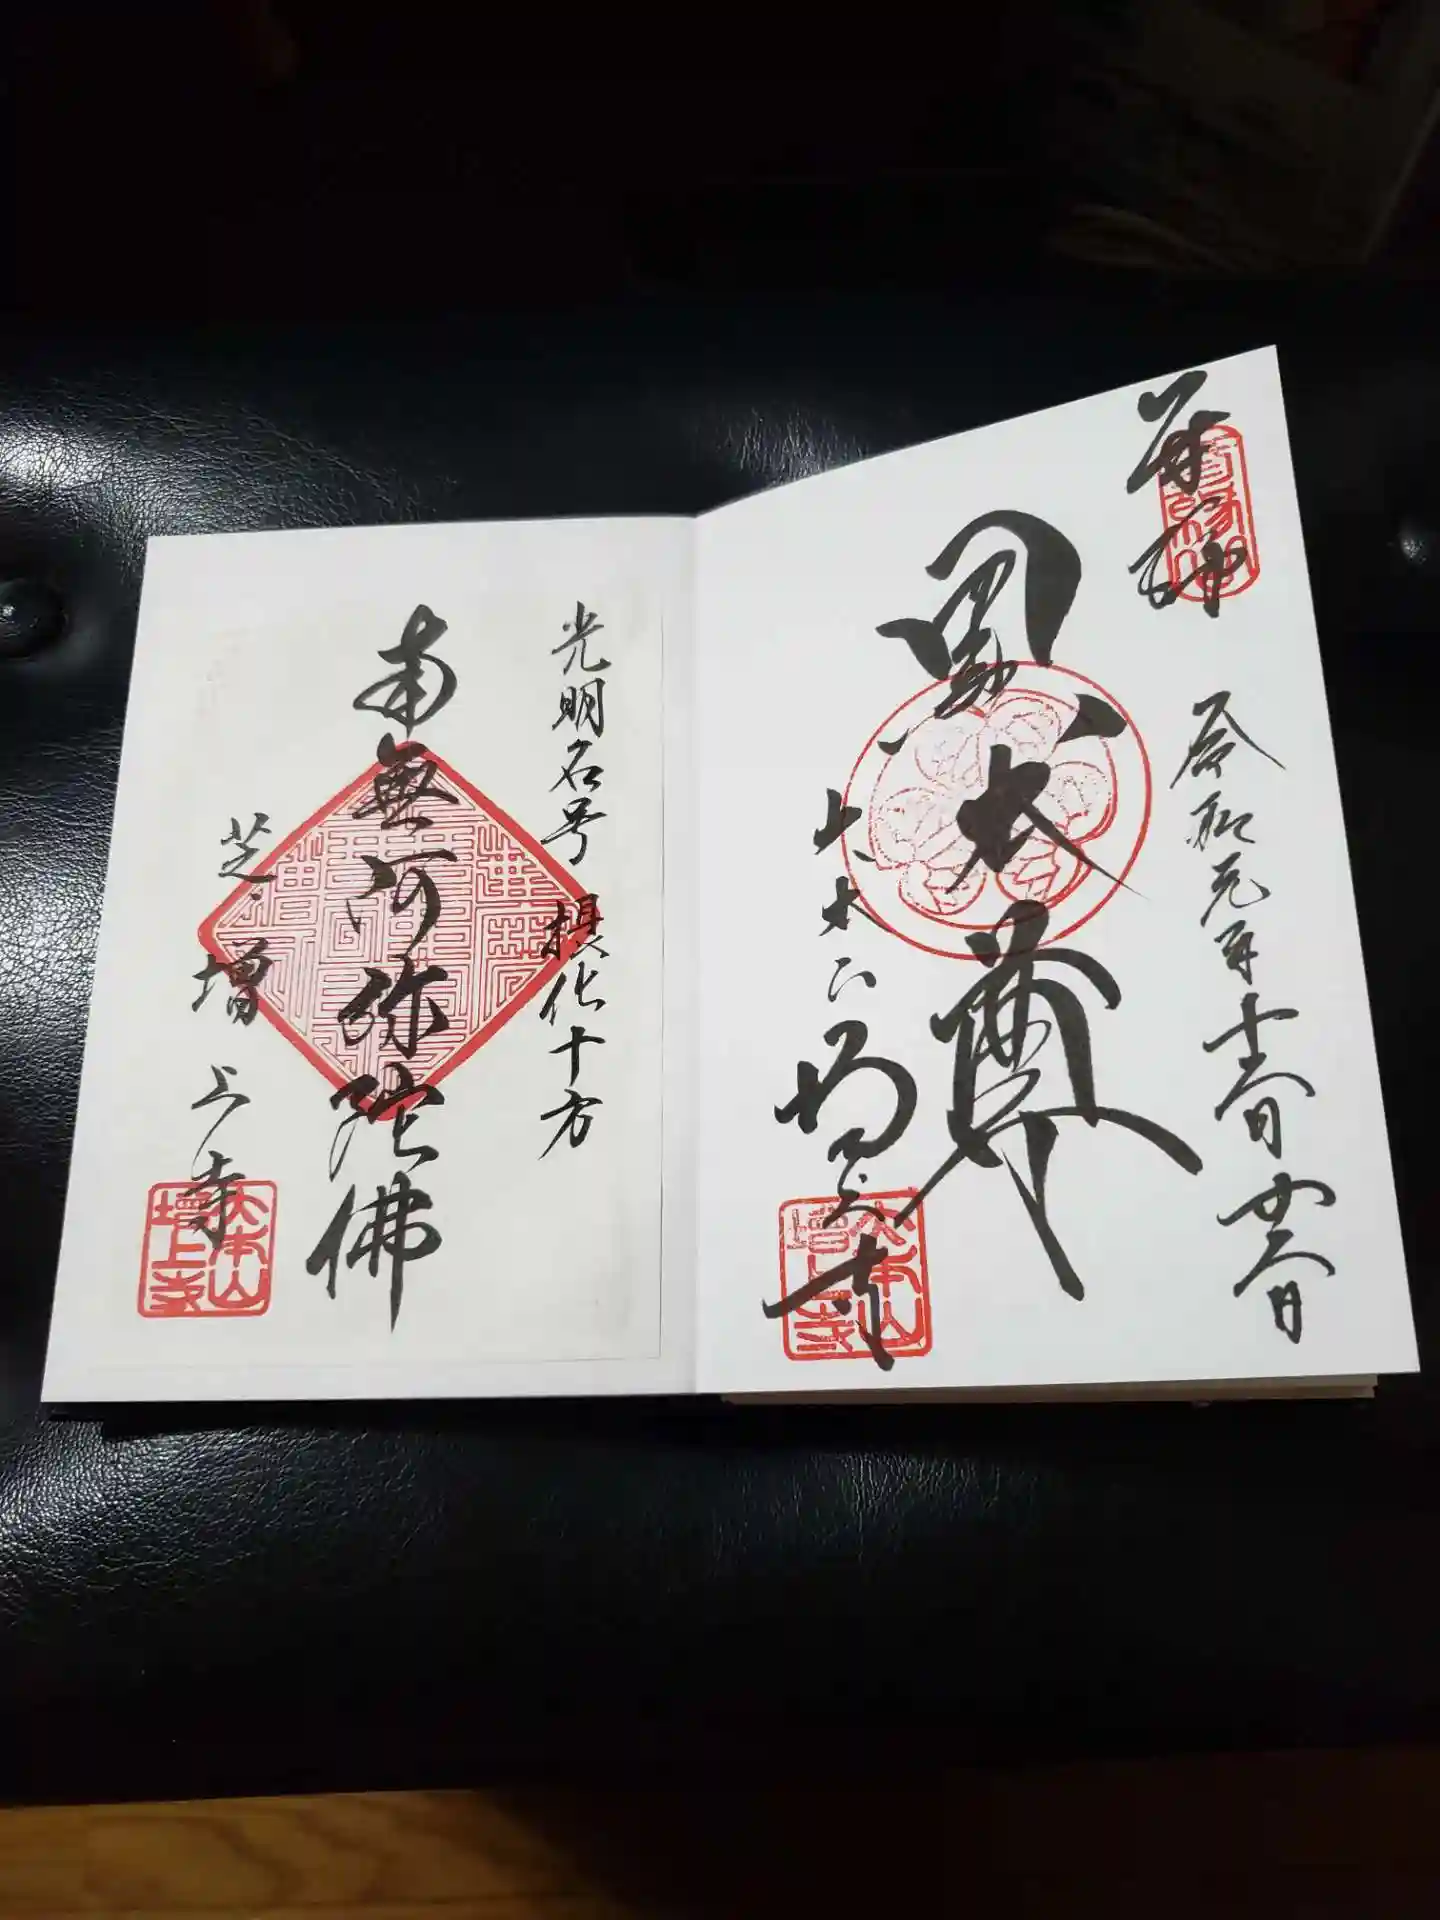 奉拝
令和元年十一月廿一日
黒本尊
大本山
増上寺
大本山
増上寺
光明名号 摂化十方
南無阿弥陀佛
芝 増上寺
大本山
増上寺